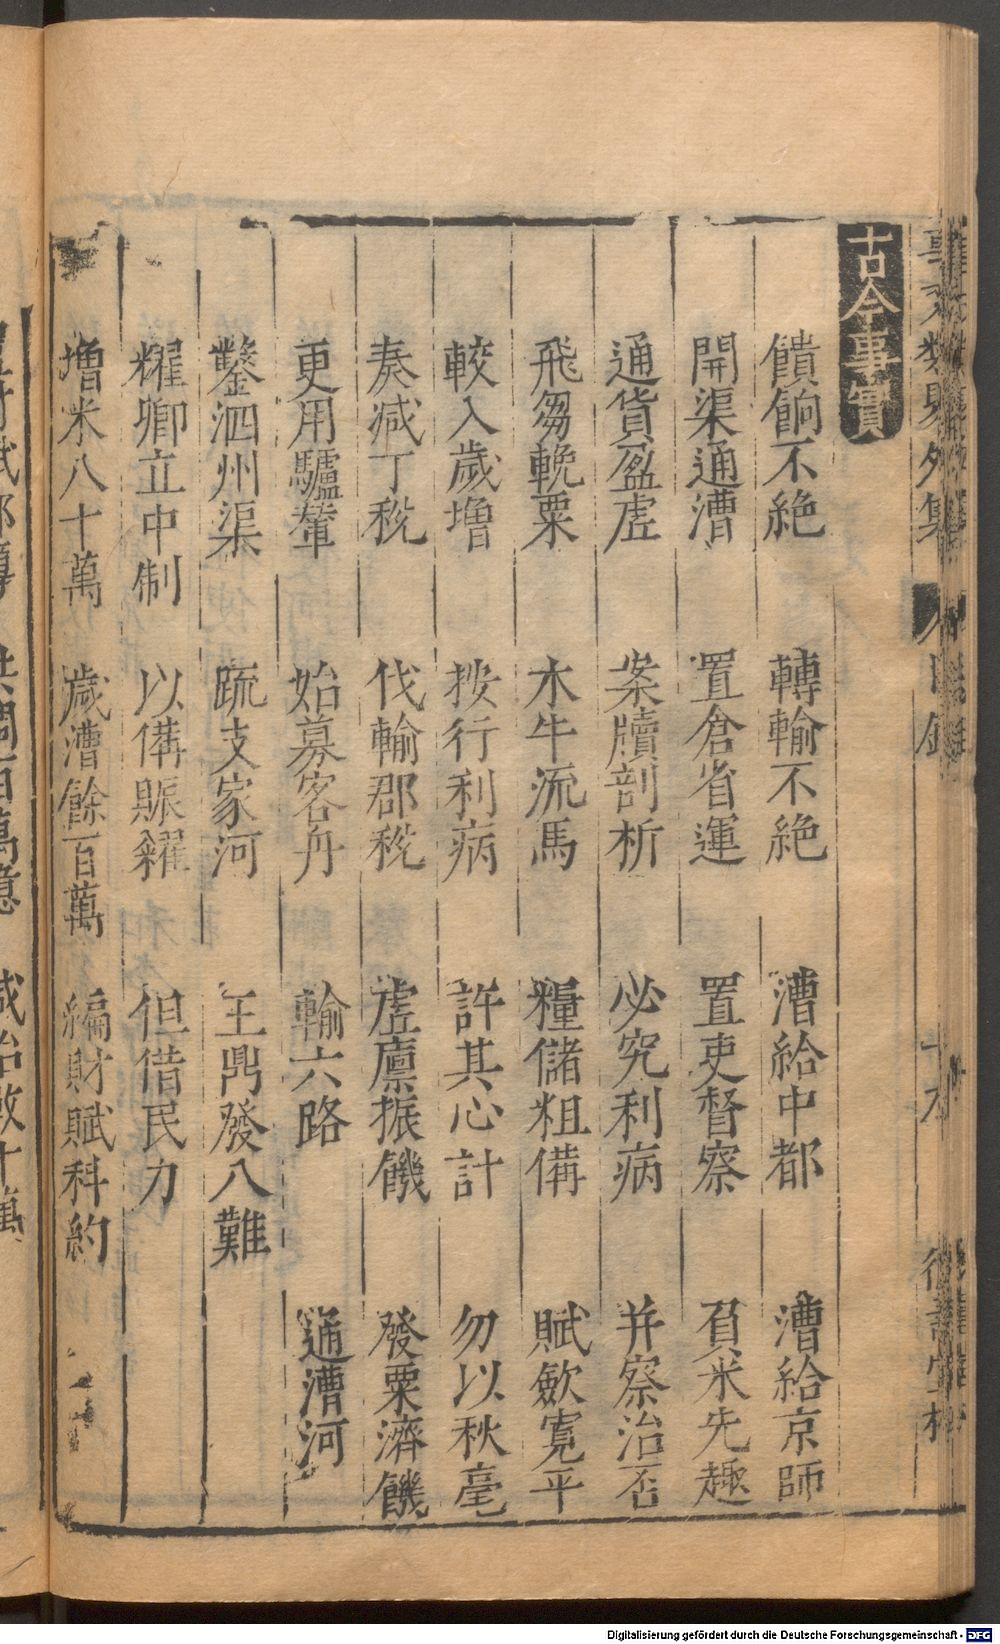 古今事實
饋餉不絶 轉輸不絶 漕給中都 漕給京師
開渠通漕 置倉省運 置吏督察 負米先趣
通貨盈虗 案牘剖析 必究利病 并察治否
飛芻輓粟 木牛流馬 糧儲粗俻 賦斂寬平
較入歲增 按行利病 許其心計 勿以秋毫
奏减丁稅 伐輸郡稅 虗廪振饑 發粟濟饑
更用驢輦 始募客舟 輸六路 通漕河
鑿泗州渠 䟽支家河 王鼎發八難
耀卿立中制 以俻賑糴 但借民力
增米八十萬 歲漕餘百萬 編財賦科約
Digitalisierung gefördert durch die Deutsche Forschungsgemeinschaft - DFG